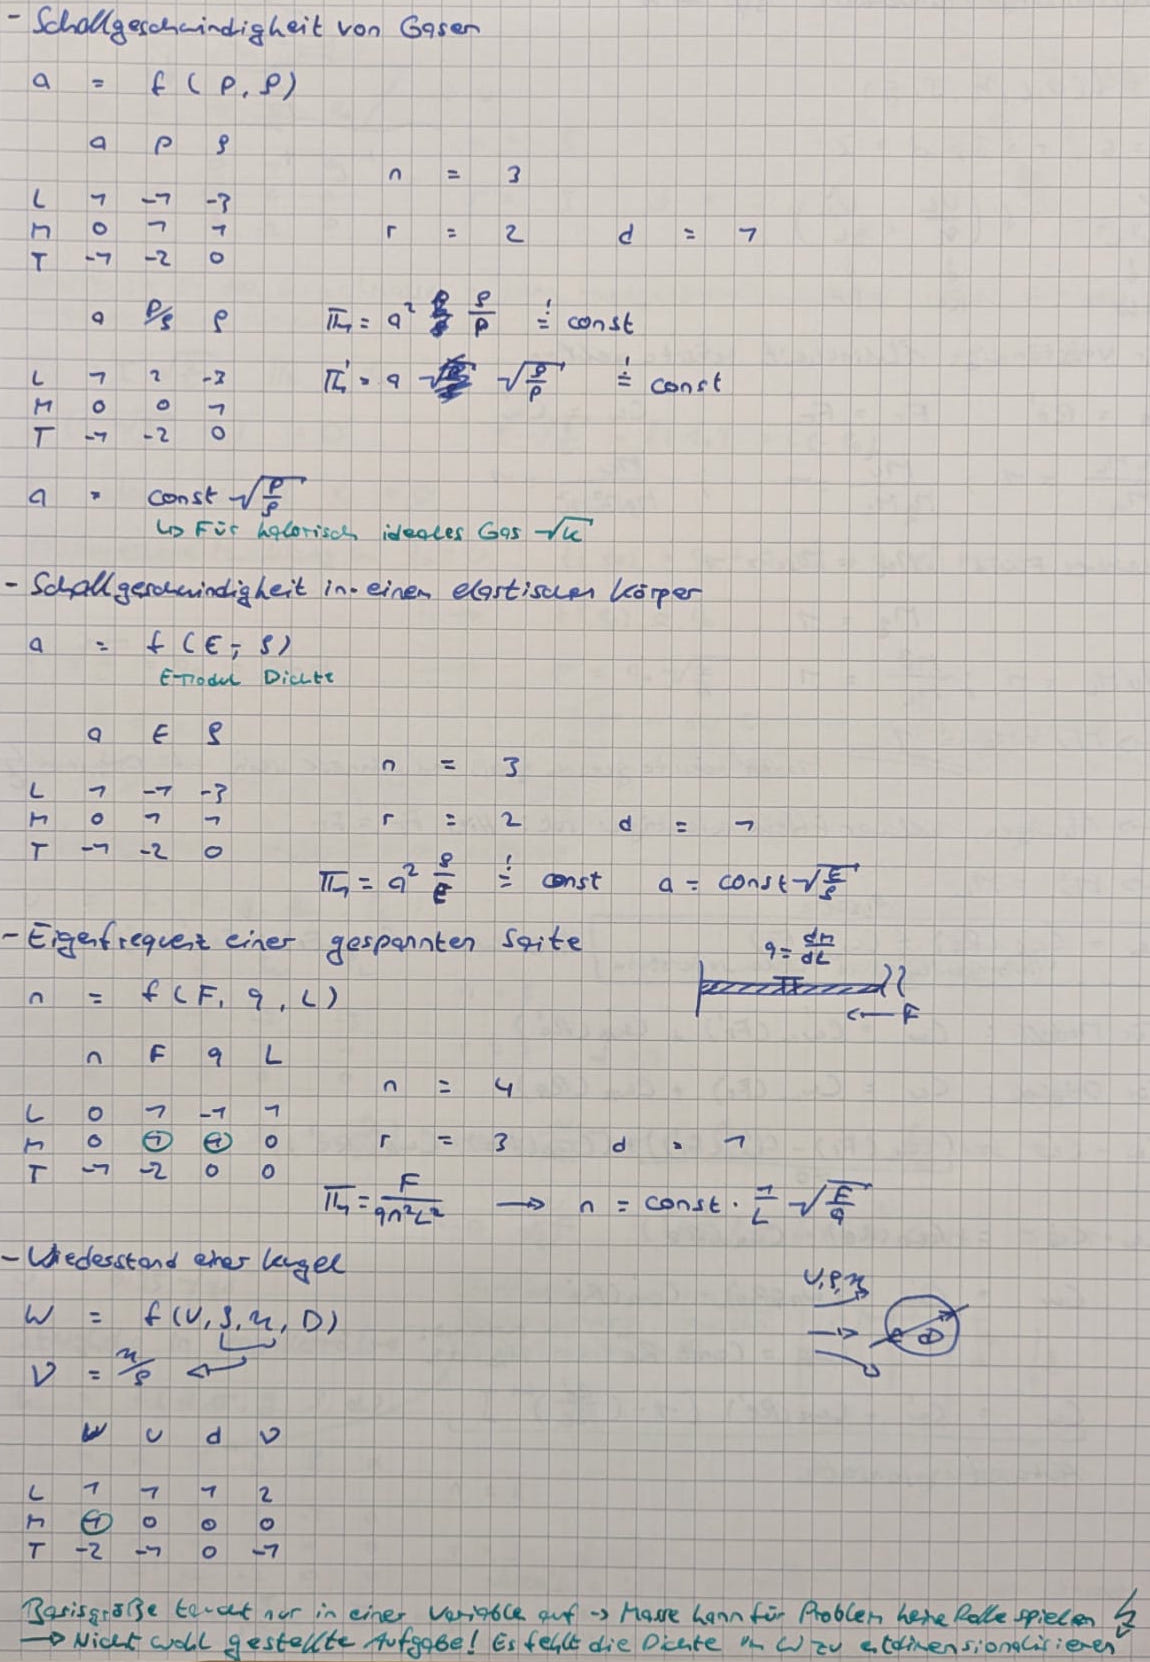 - Schallgeschwindigkeit von Gasen
a = f (p, ρ)
a p ρ
n = 3
L 1 -1 -3
M 0 1 1
r = 2 d = 1
T -1 -2 0
a p/ρ ρ
π₁ = a² ρ/p ≐! const
L 1 2 -3
π₁' = a √(ρ/p) ≐! const
M 0 0 1
T -1 -2 0
a = const √(p/ρ)
↳ Für kalorisch ideales Gas √κ
- Schallgeschwindigkeit in einem elastischen Körper
a = f (E, ρ)
E-Modul Dichte
a E ρ
n = 3
L 1 -1 -3
M 0 1 1
r = 2 d = 1
T -1 -2 0
π₁ = a² ρ/E ≐! const a = const √(E/ρ)
- Eigenfrequenz einer gespannten Saite
q = dm/dL
n = f (F, q, L)
← F
n F q L
n = 4
L 0 1 -1 1
M 0 1 1 0
r = 3 d = 1
T -1 -2 0 0
π₁ = F/(qn²L²) → n = const · 1/L √(F/q)
- Wiedesstand einer Kugel
U, ρ, η
W = f (U, ρ, η, D)
d
ν = η/ρ ←
W U d ν
L 1 1 1 2
M 1 0 0 0
T -2 -1 0 -1
Basisgröße taucht nur in einer Variable auf → Masse kann für Problem keine Rolle spielen ↯
→ Nicht wohl gestellte Aufgabe! Es fehlt die Dichte um W zu entdimensionalisieren